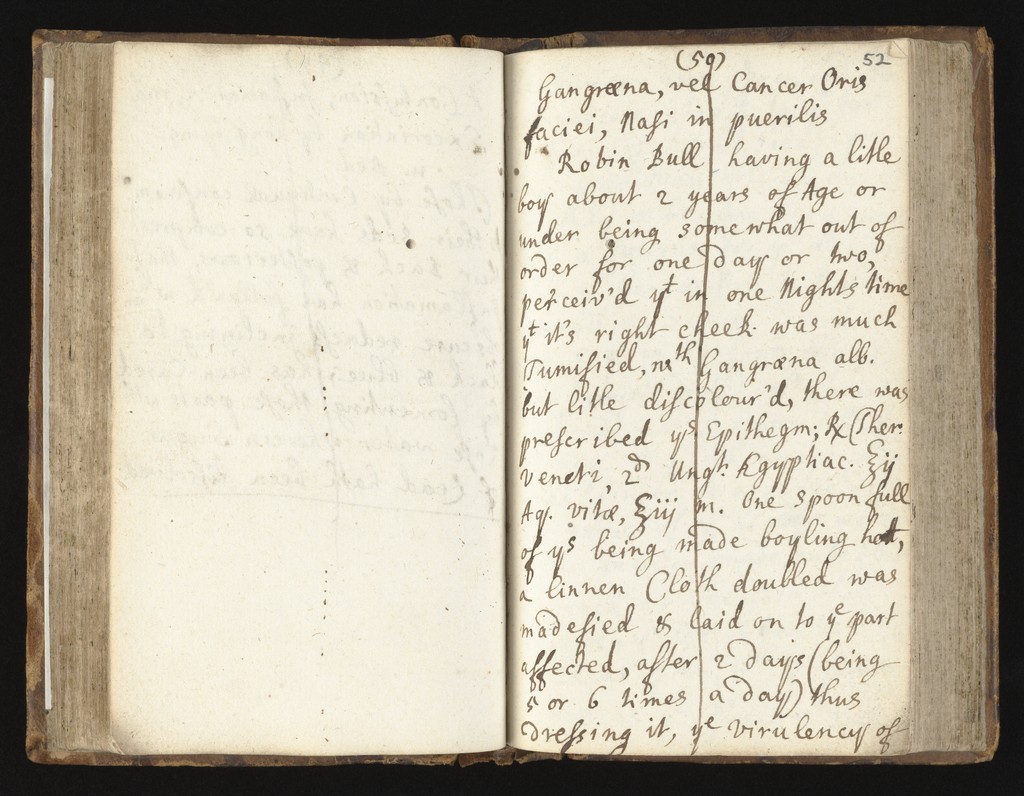 (50) 52
Gangræna, vel Cancer Oris
faciei, Nasi in puerilis
Robin Bull having a litle
boy about 2 years of Age or
under being somewhat out of
order for one day or two,
perceiv'd yt in one Nights time
yt it's right cheek was much
Tumified, wth Gangræna alb.
but litle discolour'd, there was
prescribed ys Epithegm; ℞ (Ther.
veneti, 2d Ungt. Egyptiac. ℥ij
Aq. vitæ, ℥iij m. One spoon full
of ys being made boyling hott,
a linnen Cloth doubled was
madefied & laid on to ye part
affected, after 2 days (being
5 or 6 times a day) thus
dressing it, ye virulency of